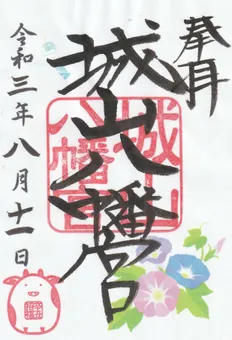 奉拝
城山八幡宮
城山八幡宮
令和三年八月十一日